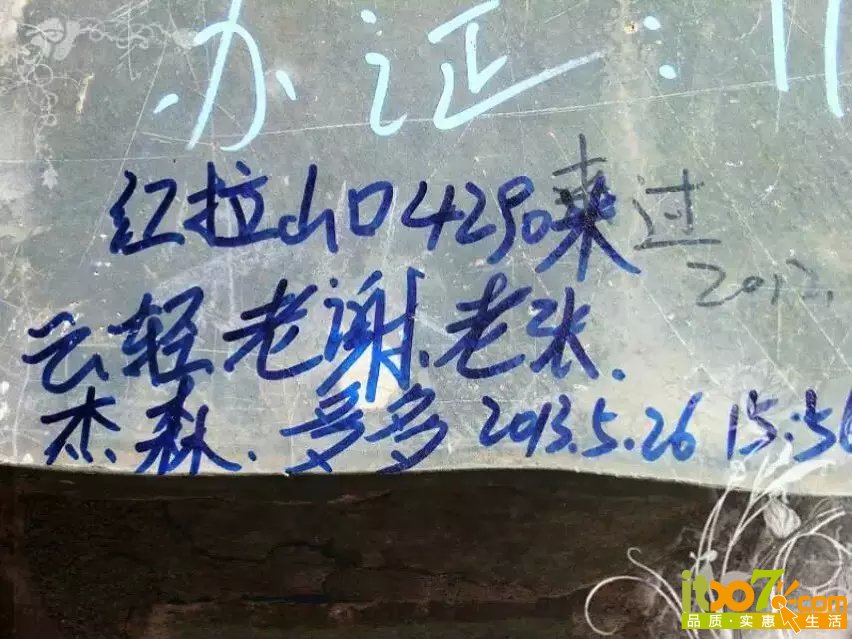 办证:11
红拉山口4290来过
2012.
云轻老谢.老张.
杰森.多多 2013.5.26 15:56
itbo7.com
品质·实惠 生活